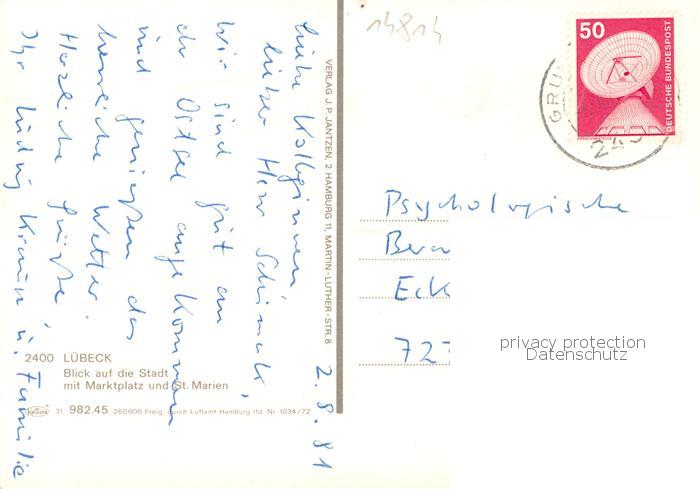 14814
50
DEUTSCHE BUNDESPOST
VERLAG J. P. JANTZEN, 2 HAMBURG 11, MARTIN-LUTHER-STR. 8
2.8.81
Liebe Kolleginnen,
lieber Herr Schimak,
Wir sind gut an
der Ostsee angekommen
und genießen das
herrliche Wetter.
Herzliche Grüße,
Ihr Ludwig Kraus u. Familie
Psychologische
Bera
Eck
727
privacy protection
Datenschutz
2400 LÜBECK
Blick auf die Stadt
mit Marktplatz und St. Marien
31 982.45 260000 Freig. durch Luftamt Hamburg lfd. Nr. 1034/72